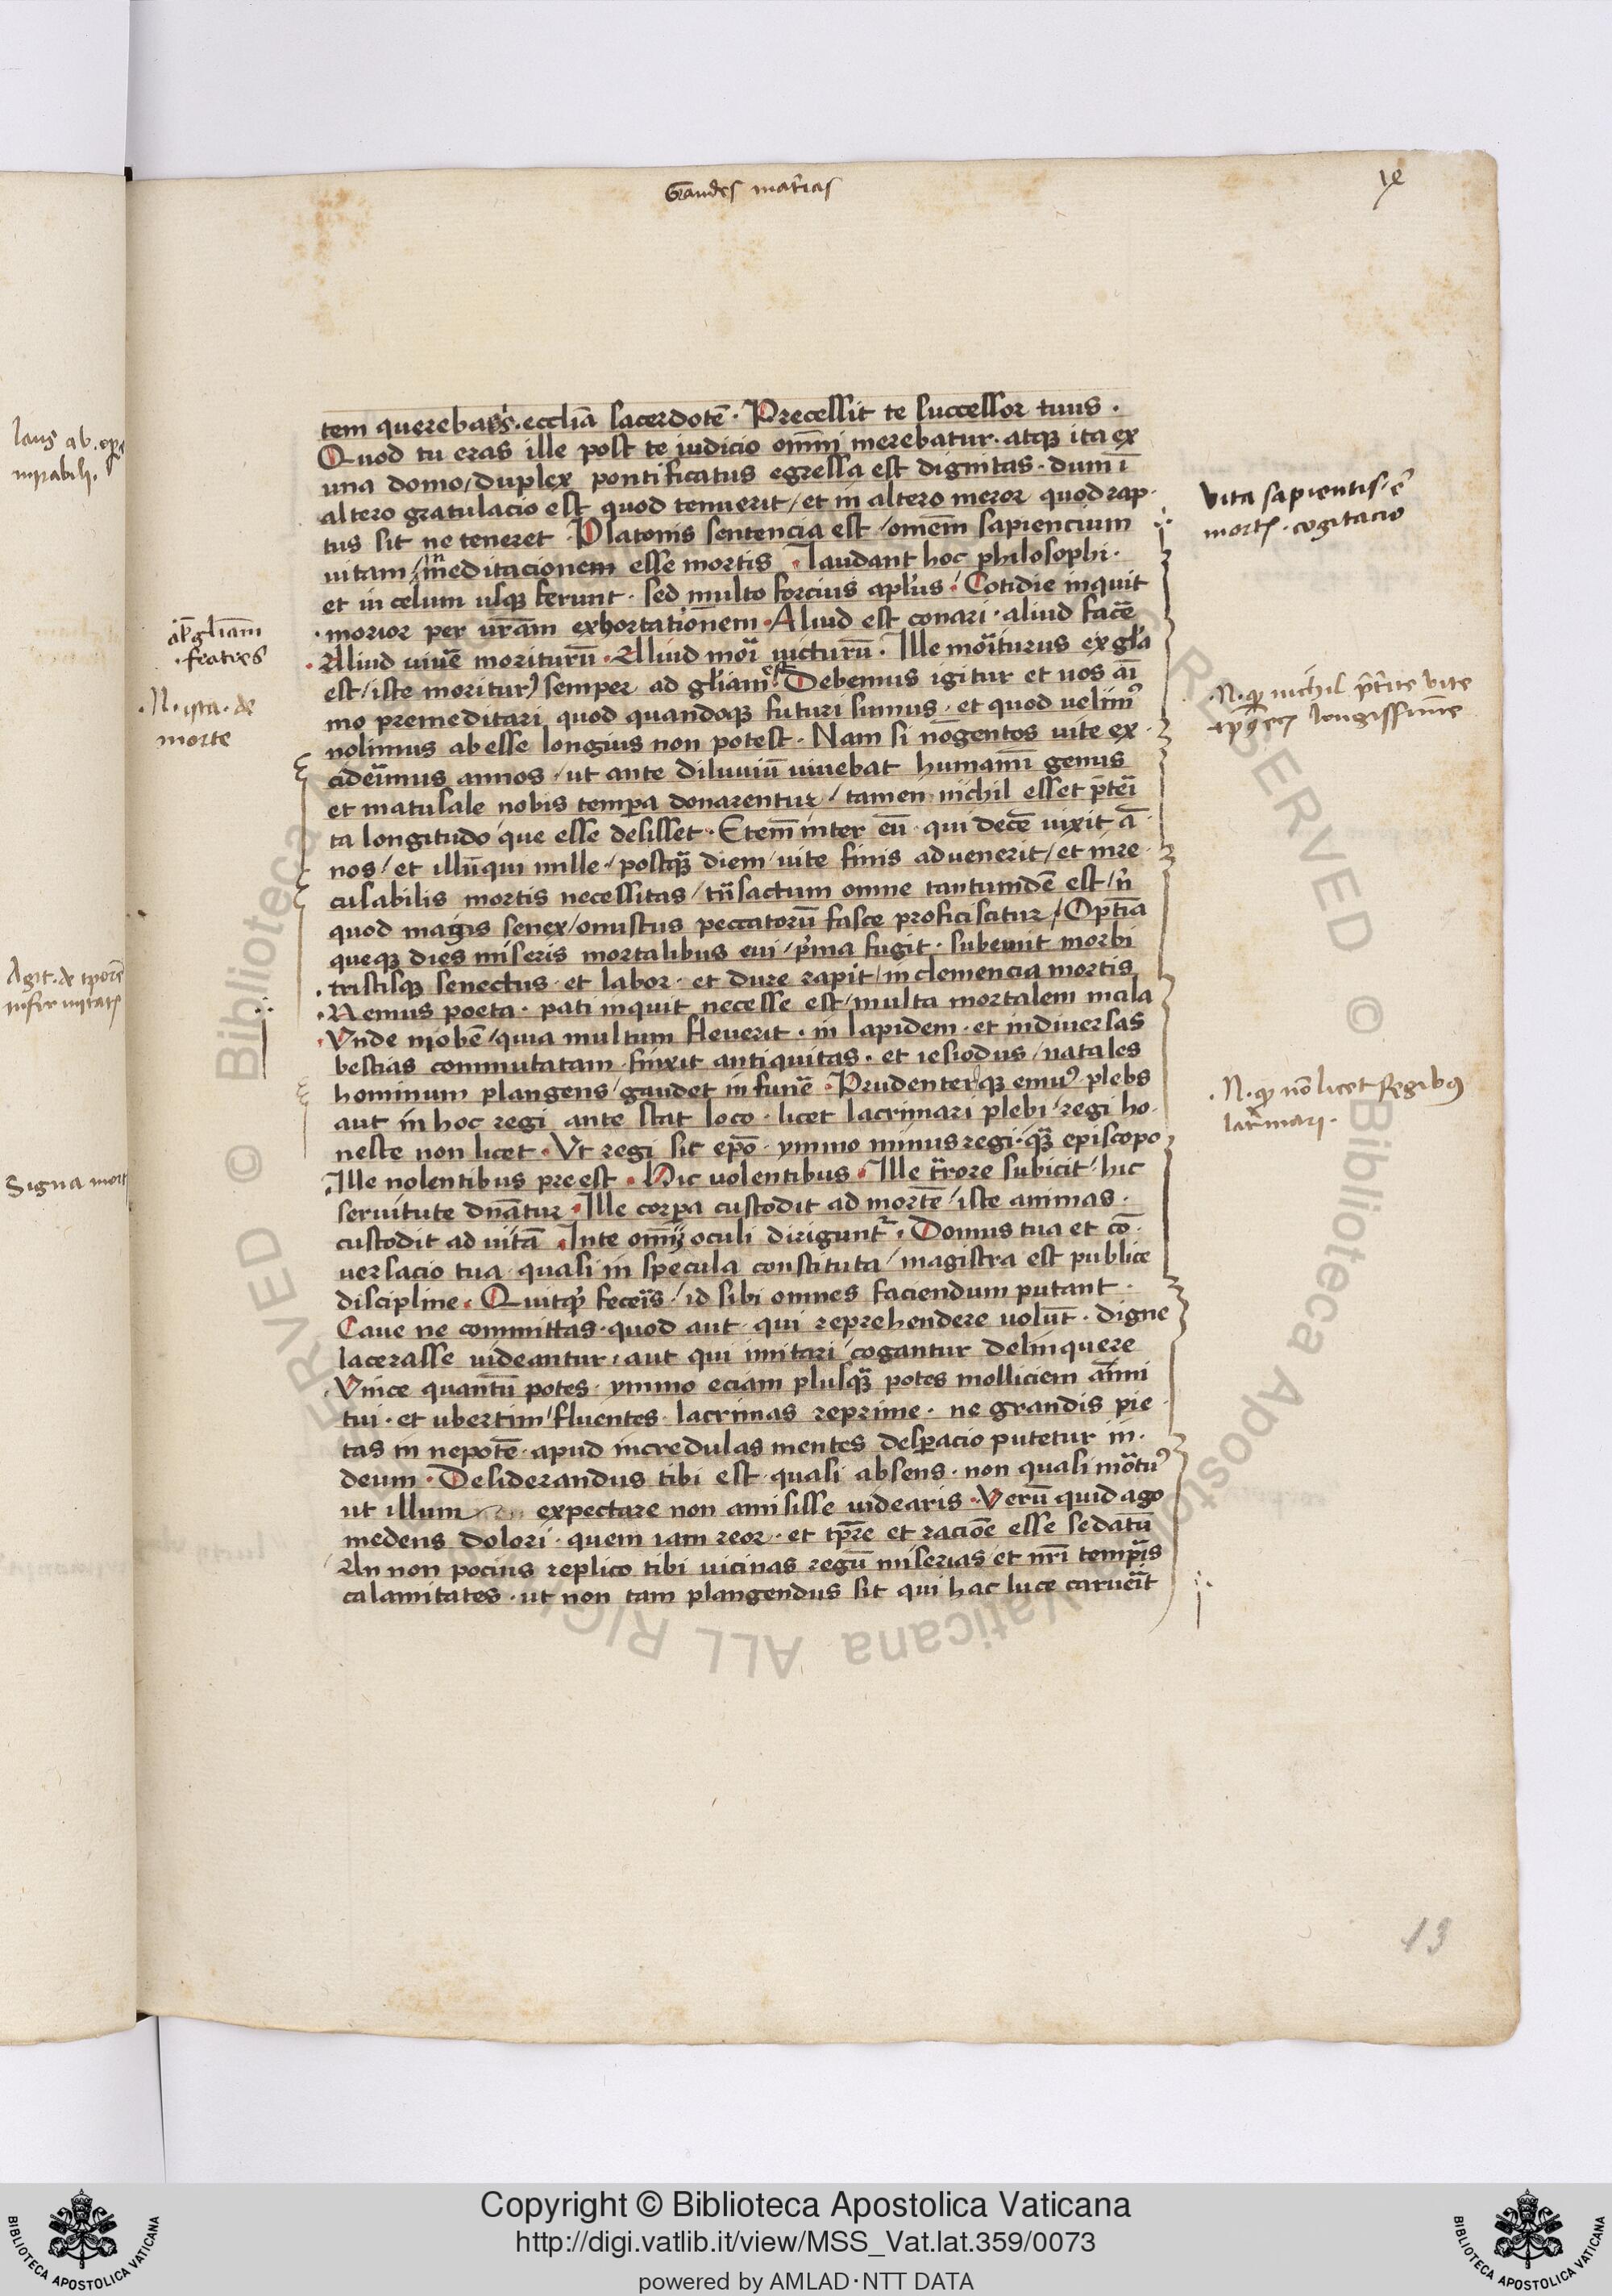 Grandes mat̄ias
tem querebas ecclīa sacerdotē · Precessit te successor tuus ·
Quod tu eras ille post te iudicio om̄i merebatur · atqꝫ ita ex
una domo / duplex pontificatus egressa est dignitas · dum ī
altero gratulacio est quod tenuerit / et in altero meror quod rap·
tus sit ne teneret · Platonis sentencia est / omnem sapiencium
uitam / meditacionem esse mortis · laudant hoc philosophi ·
et in celum usqꝫ ferunt · sed multo forcius apl̄us · Cotidie inquit
morior per ur̄am exhortationem · Aliud est conari · aliud facē
Aliud uiuē moriturū · Aliud mori uicturū · Ille moiturus ex gl̄a
est / iste moritur semper ad gl̄iam · Debemus igitur et nos āi
mo premeditari quod quandoqꝫ futuri sumus · et quod uelimꝰ
nolimus abesse longius non potest · Nam si nōgentos uite ex·
cideīmus annos / ut ante diluuiū uiuebat humanū genus
et matusale nobis tempora donarentur / tamen nichil esset p̄teī
ta longitudo que esse desisset · Etem̄ inter eū qui decē uixit ā
nos / et illū qui mille / postqꝫ diem uite finis aduenerit / et inre
cusabilis mortis necessitas / tn̄sactum omne tantumdē est / nͥ
quod magis senex / onustus peccatorū fasce proficiscitur / Optīa
queqꝫ dies miseris mortalibus eui / pͥma fugit · subeunt morbi
tristisqꝫ senectus · et labor · et dure rapit / inclemencia mortis
Nemus poeta · pati inquit necesse est / multa mortalem mala
Vnde niobē / quia multum fleuerit · in lapidem · et in diuersas
bestias commutatam finxit antiquitas · et iesiodus / natales
hominum plangens / gaudet in funē · Prudenterqꝫ emuꝰ · plebs
aut in hoc regi ante stat loco · licet lacrimari plebi / regi ho·
neste non licet · Vt regi sit ep̄o · ymmo minus regi · qꝫ episcopo
Ille nolentibus preest · Hic uolentibus · Ille t̄rore subicit / hic
seruitute dn̄atur · Ille corpora custodit ad mortē / iste animas ·
custodit ad uitā · In te om̄ij oculi diriguntr · Domus tua et cō·
uersacio tua · quasi in specula constituta / magistra est publice
discipline · Quitqꝫ feceis / id sibi omnes faciendum putant ·
Caue ne committas · quod aut qui reprehendere uolūt · digne
lacerasse uideantur · aut qui imitari / cogantur delinquere
Vince quantū potes · ymmo eciam plusqꝫ potes molliciem animi
tui · et ubertim / fluentes lacrimas reprime · ne grandis pie·
tas in nepotē · apud incredulas mentes desperacio putetur in·
deum · Desiderandus tibi est quasi absens · non quasi mōtuꝰ
ut illum expectare non amisisse uidearis · Verū quid ago
medens dolori · quem iam reor · et tp̄re et racioē esse sedatū
An non pocius replico tibi uicinas regū miserias / et nr̄i temporis
calamitates · ut non tam plangendus sit qui hac luce carueīt
laus ab ope
mirabili ·
Agit · de tporē
infirmitatꝭ
Signa mort
ap̄ gl̄iam
fratres
· N · ista · de
morte
Vita sapientis · ē
mortꝭ · cogitacio
· N · ꝙ nichil p̄t̄ite vite
longissime
· N · ꝙ nō licet Regibꝰ
lacrimari ·
13
Copyright © Biblioteca Apostolica Vaticana
http://digi.vatlib.it/view/MSS_Vat.lat.359/0073
powered by AMLAD·NTT DATA
BIBLIOTECA APOSTOLICA VATICANA
BIBLIOTECA APOSTOLICA VATICANA